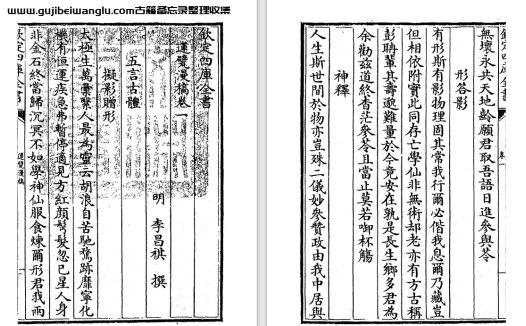 www.gujibeiwanglu.com古籍备忘录整理收集
欽定四庫全書
運甓漫稿卷一
明 李昌祺 撰
五言古體
擬影贈形
太極生萬彙人最為靈云胡浪自苦馳騖跡靡寧化
機有恒運疾急弗暫停適見方紅顏鬢髮忽已星人身
非金石終當歸沉冥不如學神仙服食煉爾形君我兩
欽定四庫全書
運甓漫稿
無壞永共天地齡願君取吾語日進參與苓
形答影
有形斯有影物理固其常我行爾必偕我息爾乃藏豈
但相依附實此同存亡學仙非無術却老亦有方古稱
彭聃輩其壽邈難量於今竟安在孰是長生鄉多君為
余勸茲道終杳茫參苓且當止莫若啣杯觴
神釋
人生斯世間於物亦豈殊二儀妙參贊政由我中居與